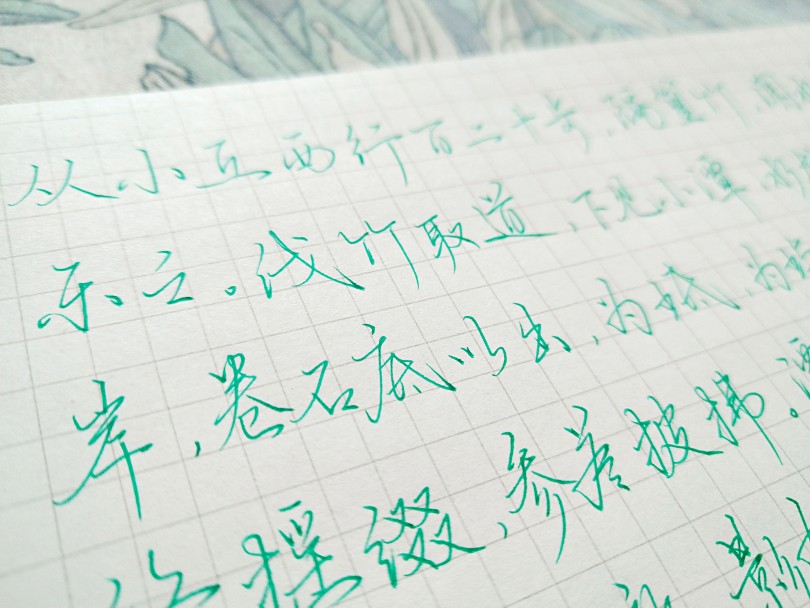 从小丘西行百二十步,隔篁竹,闻
乐之。伐竹取道,下见小潭,
岸,卷石底以出,为坻,为
络摇缀,参差披拂。潭